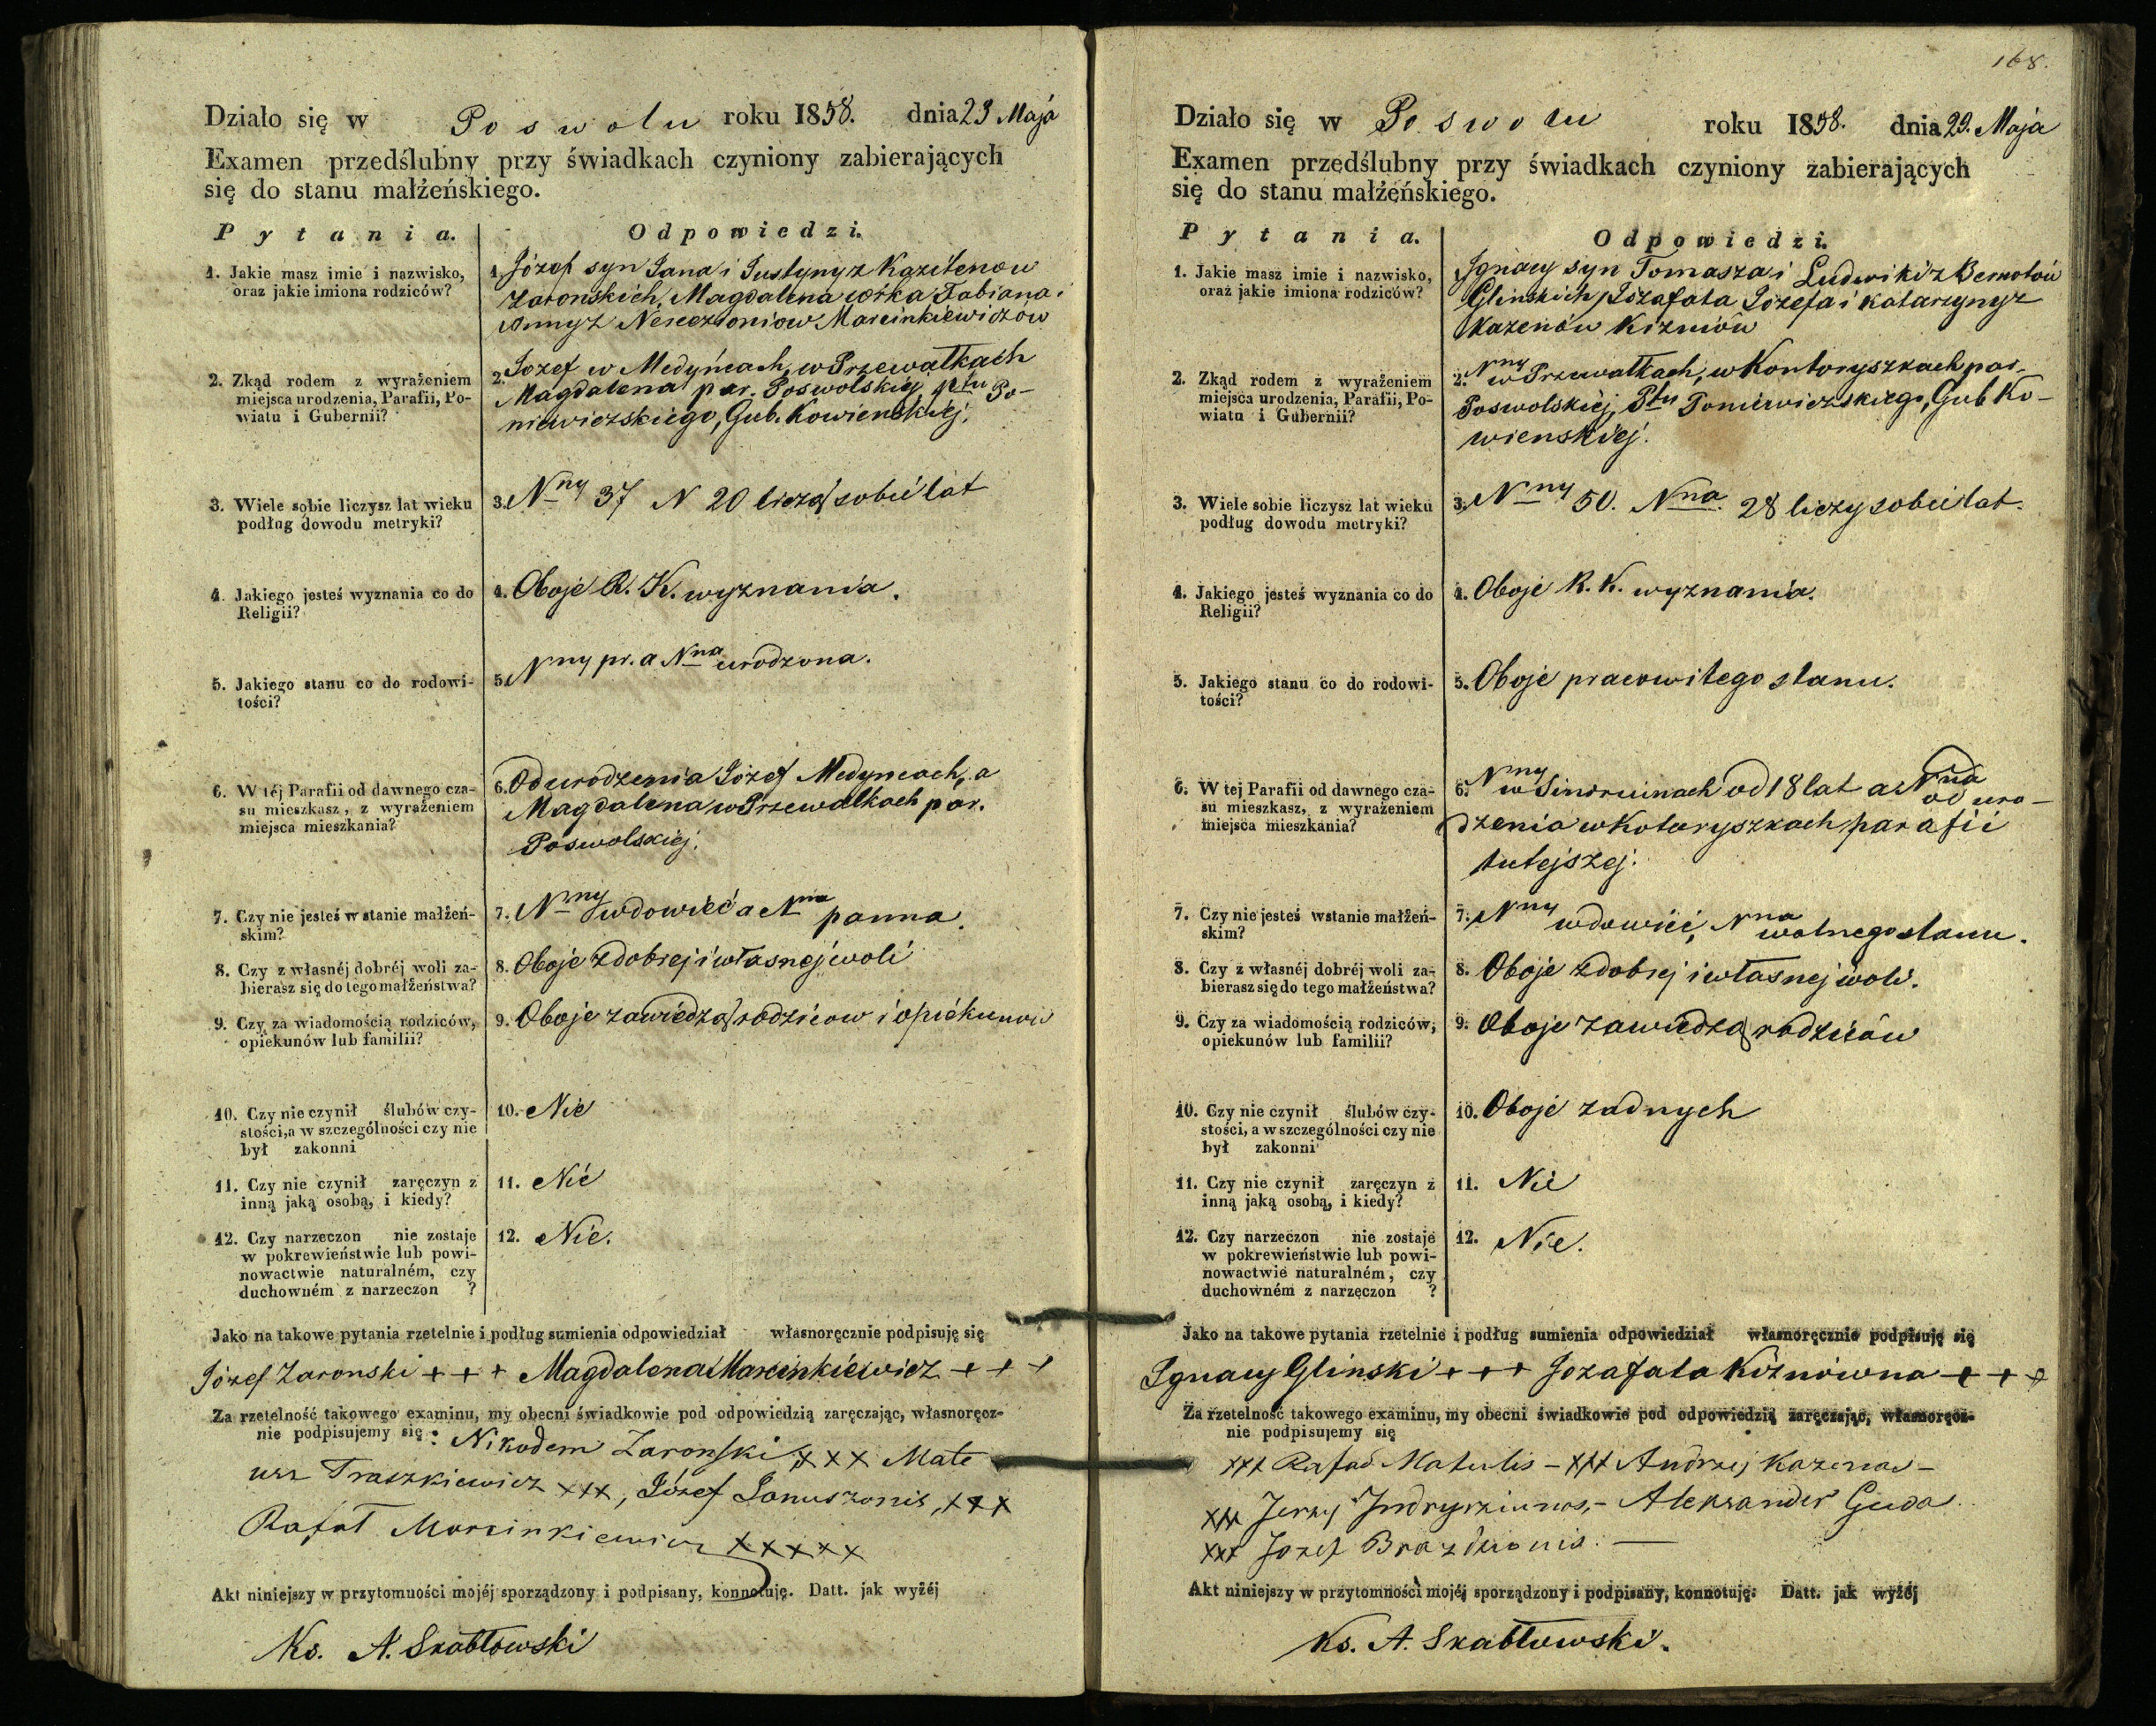 Działo się w Poswolu roku 1858. dnia 23 Maja
Examen przedślubny przy świadkach czyniony zabierających
się do stanu małżeńskiego.
Pytania. Odpowiedzi.
1. Jakie masz imie i nazwisko,
oraz jakie imiona rodziców?
1. Józef syn Jana i Justyny z Kazitenow
Zaronskich, Magdalena córka Fabiana i
Anny z Marcinkiewiczow
2. Zkąd rodem z wyrażeniem
miejsca urodzenia, Parafii, Po-
wiatu i Gubernii?
2. Jozef w Medyńcach, w Przewałkach
Magdalena par. Poswolskiej ptu Po-
niewiezskiego, Gub. Kowienskiej.
3. Wiele sobie liczysz lat wieku
podług dowodu metryki?
3. Nny 37 N 20 liczą sobie lat
4. Jakiego jesteś wyznania co do
Religii?
4. Oboje R. K. wyznania.
5. Jakiego stanu co do rodowi-
tości?
5. Nny pr. a Nna urodzona.
6. W téj Parafii od dawnego cza-
su mieszkasz, z wyrażeniem
miejsca mieszkania?
6. Od urodzenia Józef Medyncach, a
Magdalena w Przewałkach par.
Poswolskiej.
7. Czy nie jesteś w stanie małżeń-
skim?
7. Nny wdowiec a Nna panna.
8. Czy z własnéj dobréj woli za-
bierasz się do tego małżeństwa?
8. Oboje z dobrej i własnej woli
9. Czy za wiadomością rodziców,
opiekunów lub familii?
9. Oboje zawiedzą rodzicow i opiekunow
10. Czy nie czynił ślubów czy-
stości, a w szczególności czy nie
był zakonni
10. Nie
11. Czy nie czynił zaręczyn z
inną jaką osobą, i kiedy?
11. Nie
12. Czy narzeczon nie zostaje
w pokrewieństwie lub powi-
nowactwie naturalném, czy
duchowném z narzeczon ?
12. Nie.
Jako na takowe pytania rzetelnie i podług sumienia odpowiedział własnoręcznie podpisuję się
Józef Zaronski + + + Magdalena Marcinkiewicz + + +
Za rzetelność takowego examinu, my obecni świadkowie pod odpowiedzią zaręczając, własnoręcz-
nie podpisujemy się: Nikodem Zaronski xxx Mate
usz Traszkiewicz xxx, Józef Januszonis, xxx
Rafał Marcinkiewicz xxxxx
Akt niniejszy w przytomności mojéj sporządzony i podpisany, konnotuję. Datt. jak wyżéj
Ks. A. Skabłowski
168.
Działo się w Poswolu roku 1858. dnia 29. Maja
Examen przedślubny przy świadkach czyniony zabierających
się do stanu małżeńskiego.
Pytania. Odpowiedzi.
1. Jakie masz imie i nazwisko,
oraz jakie imiona rodziców?
Ignacy syn Tomasza i Ludwiki z Bernotów
Glinskich, Jozafata Jozefa i Katarzyny z
Kazenów Kiznów
2. Zkąd rodem z wyrażeniem
miejsca urodzenia, Parafii, Po-
wiatu i Gubernii?
2. Nny w Przewałkach, w Kontoryszkach par.
Poswolskiej, Ptu Poniewiezskiego, Gub Ko-
wienskiej.
3. Wiele sobie liczysz lat wieku
podług dowodu metryki?
3. Nny 50. Nna. 28 liczy sobie lat.
4. Jakiego jesteś wyznania co do
Religii?
4. Oboje R. K. wyznania.
5. Jakiego stanu co do rodowi-
tości?
5. Oboje pracowitego stanu.
6. W tej Parafii od dawnego cza-
su mieszkasz, z wyrażeniem
miejsca mieszkania?
6. Nny w od 18 lat a Nna od uro-
dzenia w Kotoryszkach parafii
tutejszej.
7. Czy nie jesteś wstanie małżeń-
skim?
7. Nny wdowiec, Nna wolnego stanu.
8. Czy z własnéj dobréj woli za-
bierasz się do tego małżeństwa?
8. Oboje z dobrej i własnej woli.
9. Czy za wiadomością rodziców,
opiekunów lub familii?
9. Oboje zawiedzą rodziców
10. Czy nie czynił ślubów czy-
stości, a w szczególności czy nie
był zakonni
10. Oboje zadnych
11. Czy nie czynił zaręczyn z
inną jaką osobą, i kiedy?
11. Nie
12. Czy narzeczon nie zostaje
w pokrewieństwie lub powi-
nowactwie naturalném, czy
duchowném z narzęczon ?
12. Nie.
Jako na takowe pytania rzetelnie i podług sumienia odpowiedział własnoręcznie podpisuję się
Ignacy Glinski + + + Jozafata Kiznówna + + +
Za rzetelność takowego examinu, my obecni świadkowie pod odpowiedzią zaręczając, własnoręcz-
nie podpisujemy się
xxx Rafał Matulis – xxx Andrzej Kazenas –
xxx Jerzy Indryrziunas, – Aleksander Guda
xxx Jozef Brazdzionis. —
Akt niniejszy w przytomności mojéj sporządzony i podpisany, konnotuję. Datt. jak wyżéj
Ks. A. Skabłowski.